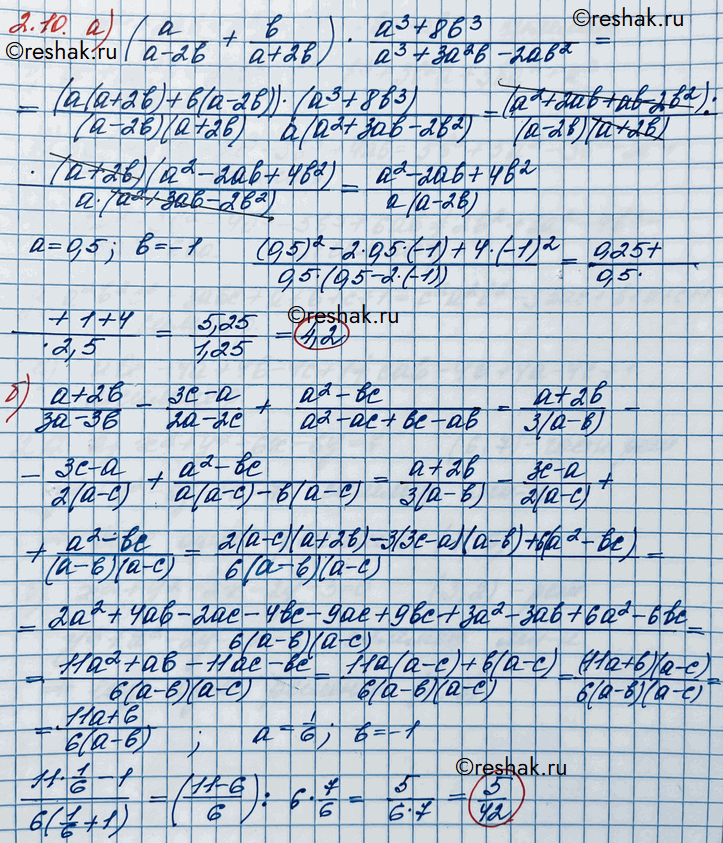 ©reshak.ru ©reshak.ru
2.10. а) (a/(a-2b) + b/(a+2b)) · (a³+8b³)/(a³+3a²b-2ab²) =
= (a(a+2b)+b(a-2b))·(a³+8b³)/((a-2b)(a+2b) a(a²+3ab-2b²)) = (a²+2ab+ab-2b²)/((a-2b)(a+2b)) ·
· (a+2b)(a²-2ab+4b²)/(a·(a²+3ab-2b²)) = (a²-2ab+4b²)/(a(a-2b))
a=0,5; b=-1 ((0,5)²-2·0,5·(-1)+4·(-1)²)/(0,5·(0,5-2·(-1))) = (0,25+)/(0,5·)
(+1+4)/(·2,5) = 5,25/1,25 = 4,2
©reshak.ru
б) (a+2b)/(3a-3b) - (3c-a)/(2a-2c) + (a²-bc)/(a²-ac+bc-ab) = (a+2b)/(3(a-b)) -
- (3c-a)/(2(a-c)) + (a²-bc)/(a(a-c)-b(a-c)) = (a+2b)/(3(a-b)) - (3c-a)/(2(a-c)) +
+ (a²-bc)/((a-b)(a-c)) = (2(a-c)(a+2b)-3(3c-a)(a-b)+6(a²-bc))/(6(a-b)(a-c)) =
= (2a²+4ab-2ac-4bc-9ac+9bc+3a²-3ab+6a²-6bc)/(6(a-b)(a-c)) =
= (11a²+ab-11ac-bc)/(6(a-b)(a-c)) = (11a(a-c)+b(a-c))/(6(a-b)(a-c)) = ((11a+b)(a-c))/(6(a-b)(a-c)) =
= (11a+b)/(6(a-b)) ; a=1/6; b=-1
©reshak.ru
(11·1/6-1)/(6(1/6+1)) = ((11-6)/6) : 6·7/6 = 5/(6·7) = 5/42